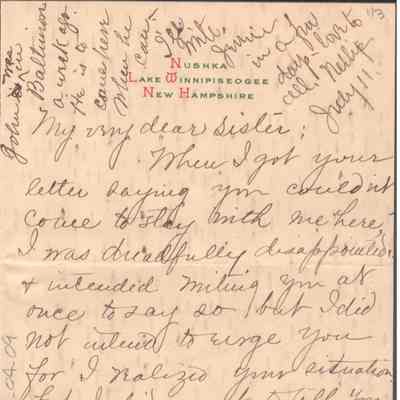 Nushka
Lake Winnipiseogee
New Hampshire
My very dear Sister;
When I got your
letter saying you couldn't
come to stay with me here,
I was dreadfully disappointed
& intended writing you at
once to say so but I did
not intend to urge you
for I realized your situation
John
Baltimore
a week ago
He is to
come here
when he
can.
I'll
write
in a few
days love to
all. Nellie
July 11
1/3